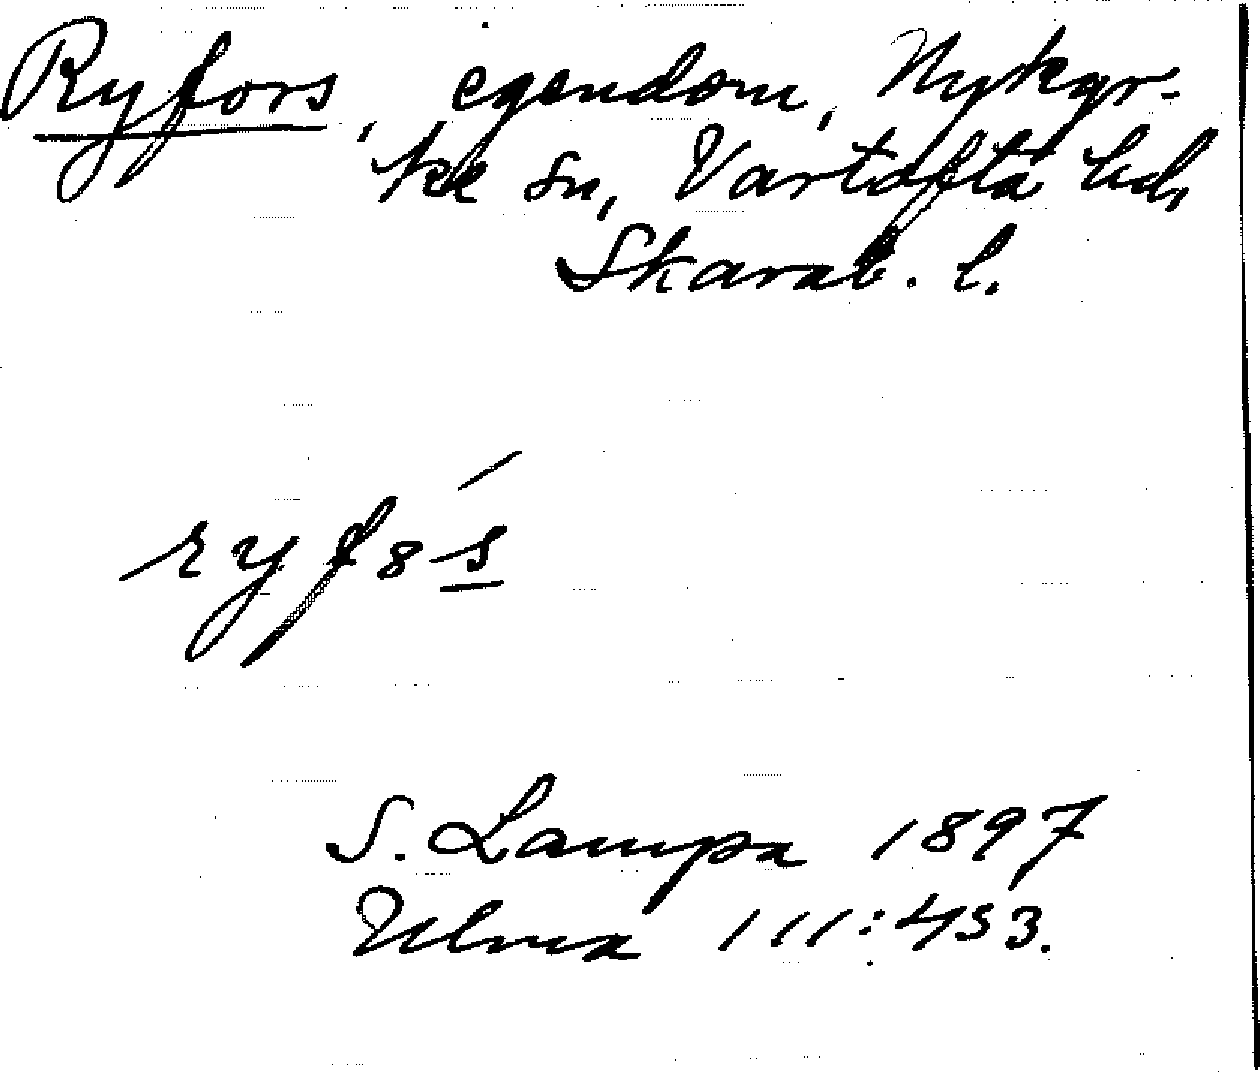 Ryfors, egendom, Nykyr-
ke sn, Vartofta hd,
Skarab. l.
ryfs
S. Lampa 1897
Ulma 111:453.